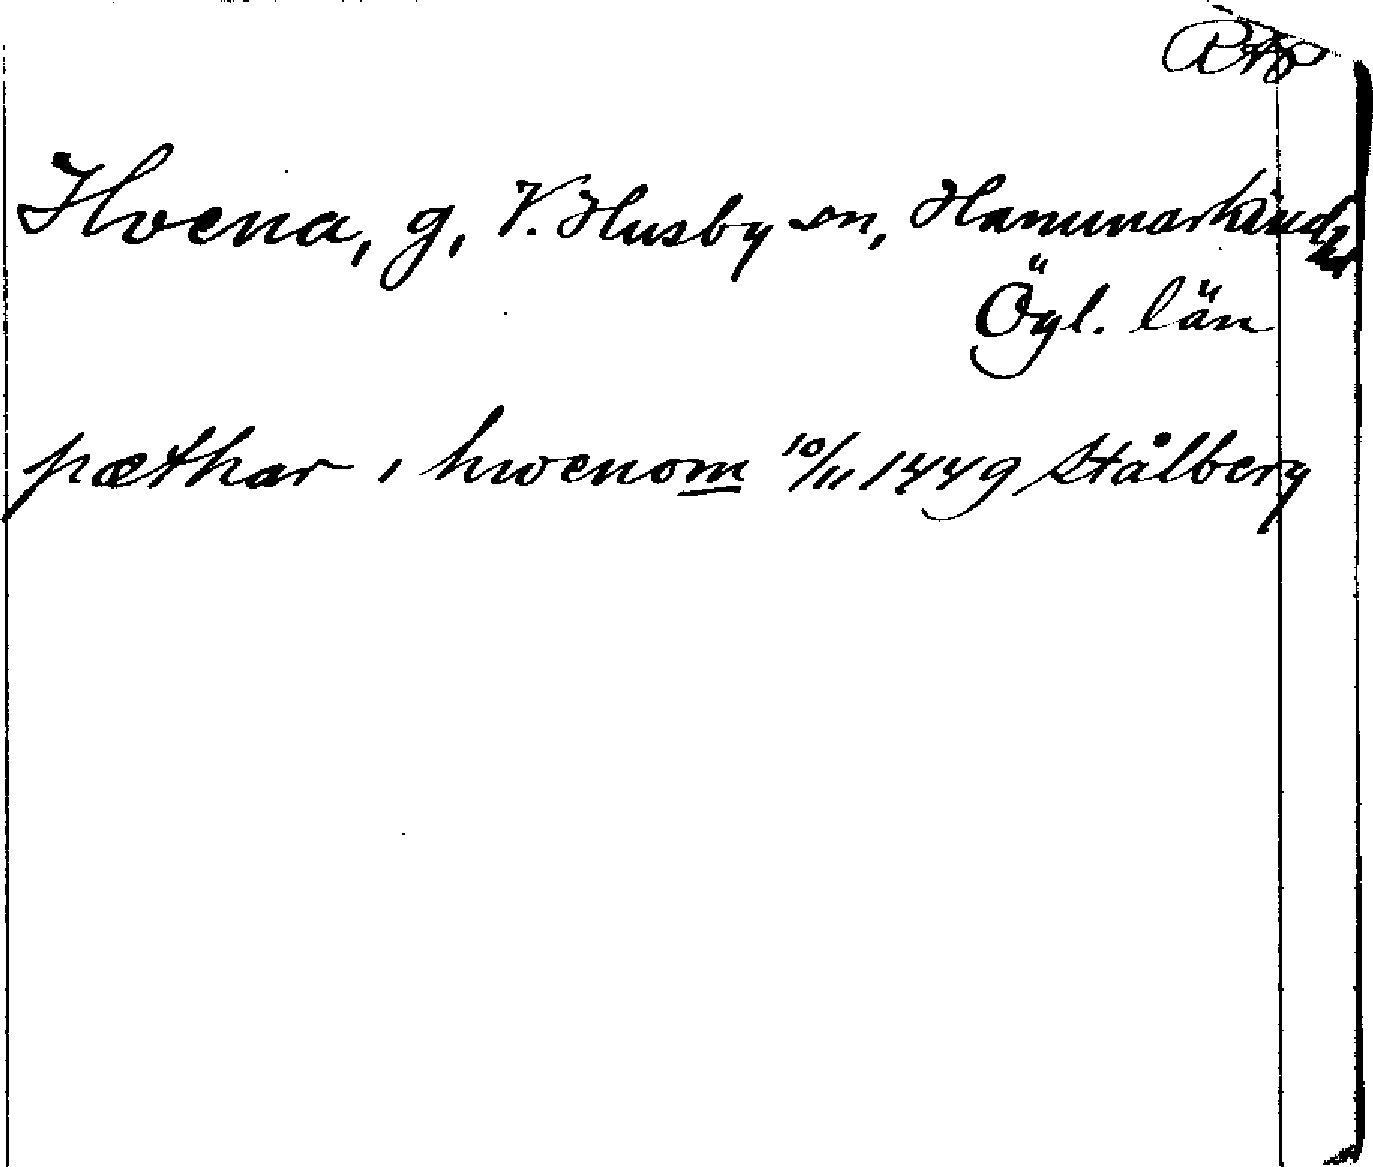 RAP
Hvena, g, V. Husby sn, Hammarkinds hd
Ögl. län
pæthar i hwenom 10/11 1449 Stålberg